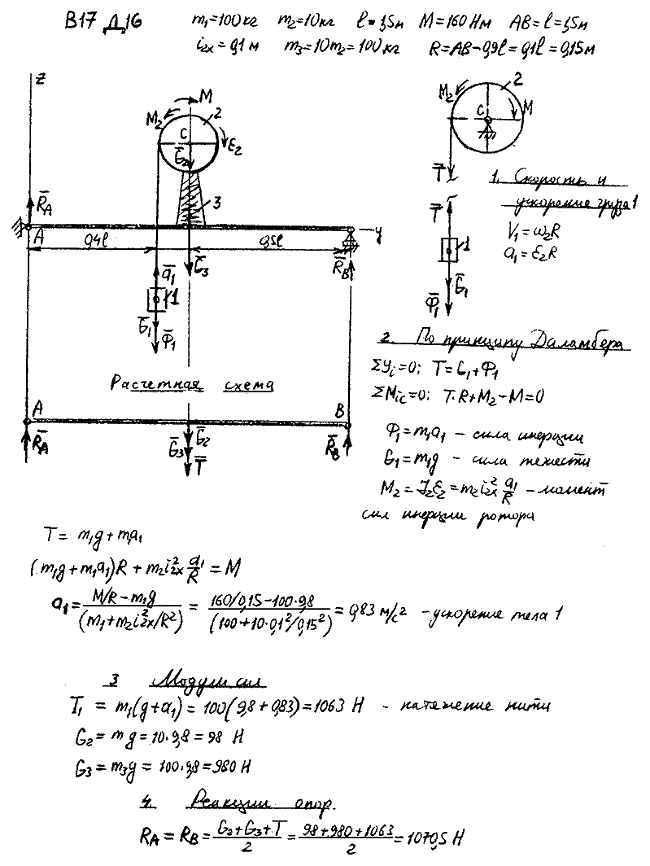 В17 Д16 m₁=100кг m₂=10кг l=1,5м M=160Нм AB=l=1,5м
i₂ₓ=0,1м m₃=10m₂=100кг R=AB-0,9l=0,1l=0,15м
z
M
M₂
2
C
ε₂
G̅₂
3
R̅A
A
y
0,4l
0,5l
a̅₁
G̅₃
R̅B
1
G̅₁
Φ̅₁
Расчетная схема
A
B
R̅A
G̅₂
G̅₃
T̅
R̅B
M₂
2
C
M
T̅
T̅
1
G̅₁
Φ̅₁
1. Скорость и
ускорение груза 1
V₁=ω₂R
a₁=ε₂R
2. По принципу Даламбера
Σyᵢ=0; T=G₁+Φ₁
ΣMic=0; T·R+M₂-M=0
Φ₁=m₁a₁ - сила инерции
G₁=m₁g - сила тяжести
M₂=J₂ε₂=m₂i₂ₓ² a₁/R - момент
сил инерции ротора
T = m₁g+m₁a₁
(m₁g+m₁a₁)R + m₂i₂ₓ² a₁/R = M
a₁ = (M/R - m₁g)/(m₁+m₂i₂ₓ²/R²) = (160/0,15-100·9,8)/(100+10·0,1²/0,15²) = 0,83 м/с² - ускорение тела 1
3 Модули сил
T₁ = m₁(g+a₁) = 100(9,8+0,83)=1063 Н - натяжение нити
G₂ = mg=10·9,8=98 Н
G₃ = m₃g = 100·9,8=980 Н
4. Реакции опор.
RA = RB = (G₂+G₃+T)/2 = (98+980+1063)/2 = 1070,5 Н